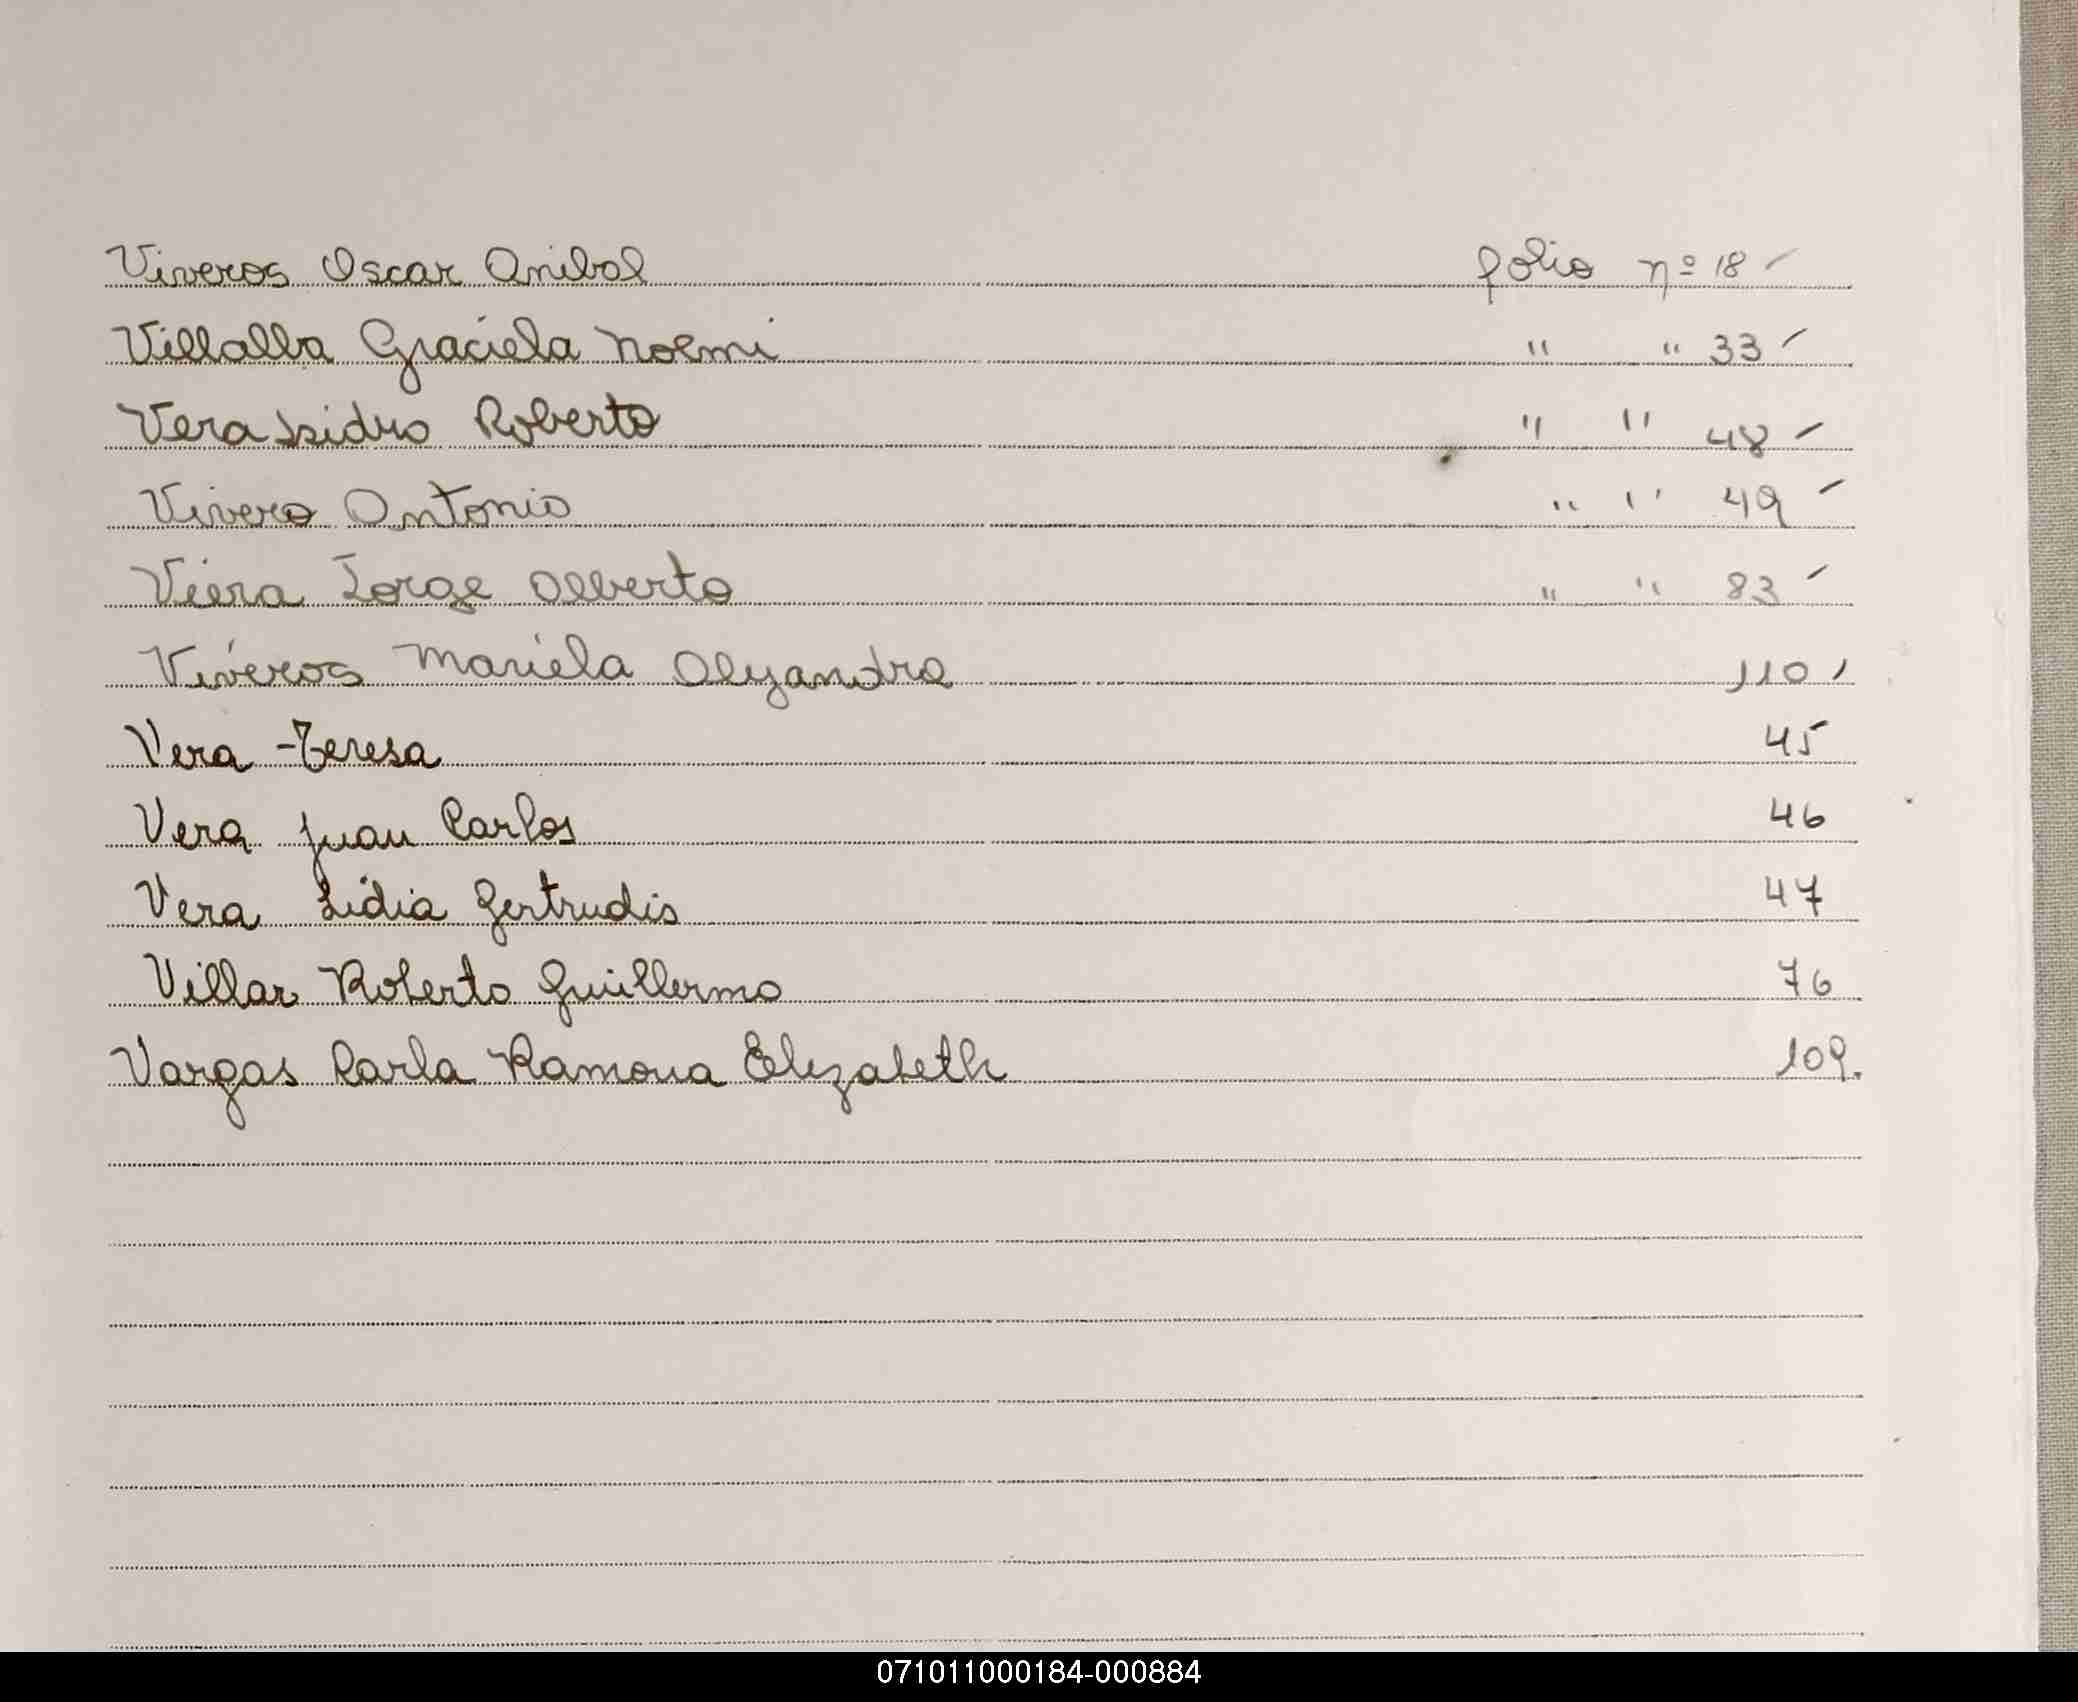 Viveros Oscar Anibal folio nº 18
Villalba Graciela Noemi " " 33
Vera Isidro Roberto " " 48
Vivero Antonio " " 49
Viera Jorge Alberto " " 83
Viveros Mariela Alejandra 110
Vera Teresa 45
Vera Juan Carlos 46
Vera Lidia Gertrudis 47
Villar Roberto Guillermo 76
Vargas Carla Ramona Elizabeth 109.
071011000184-000884